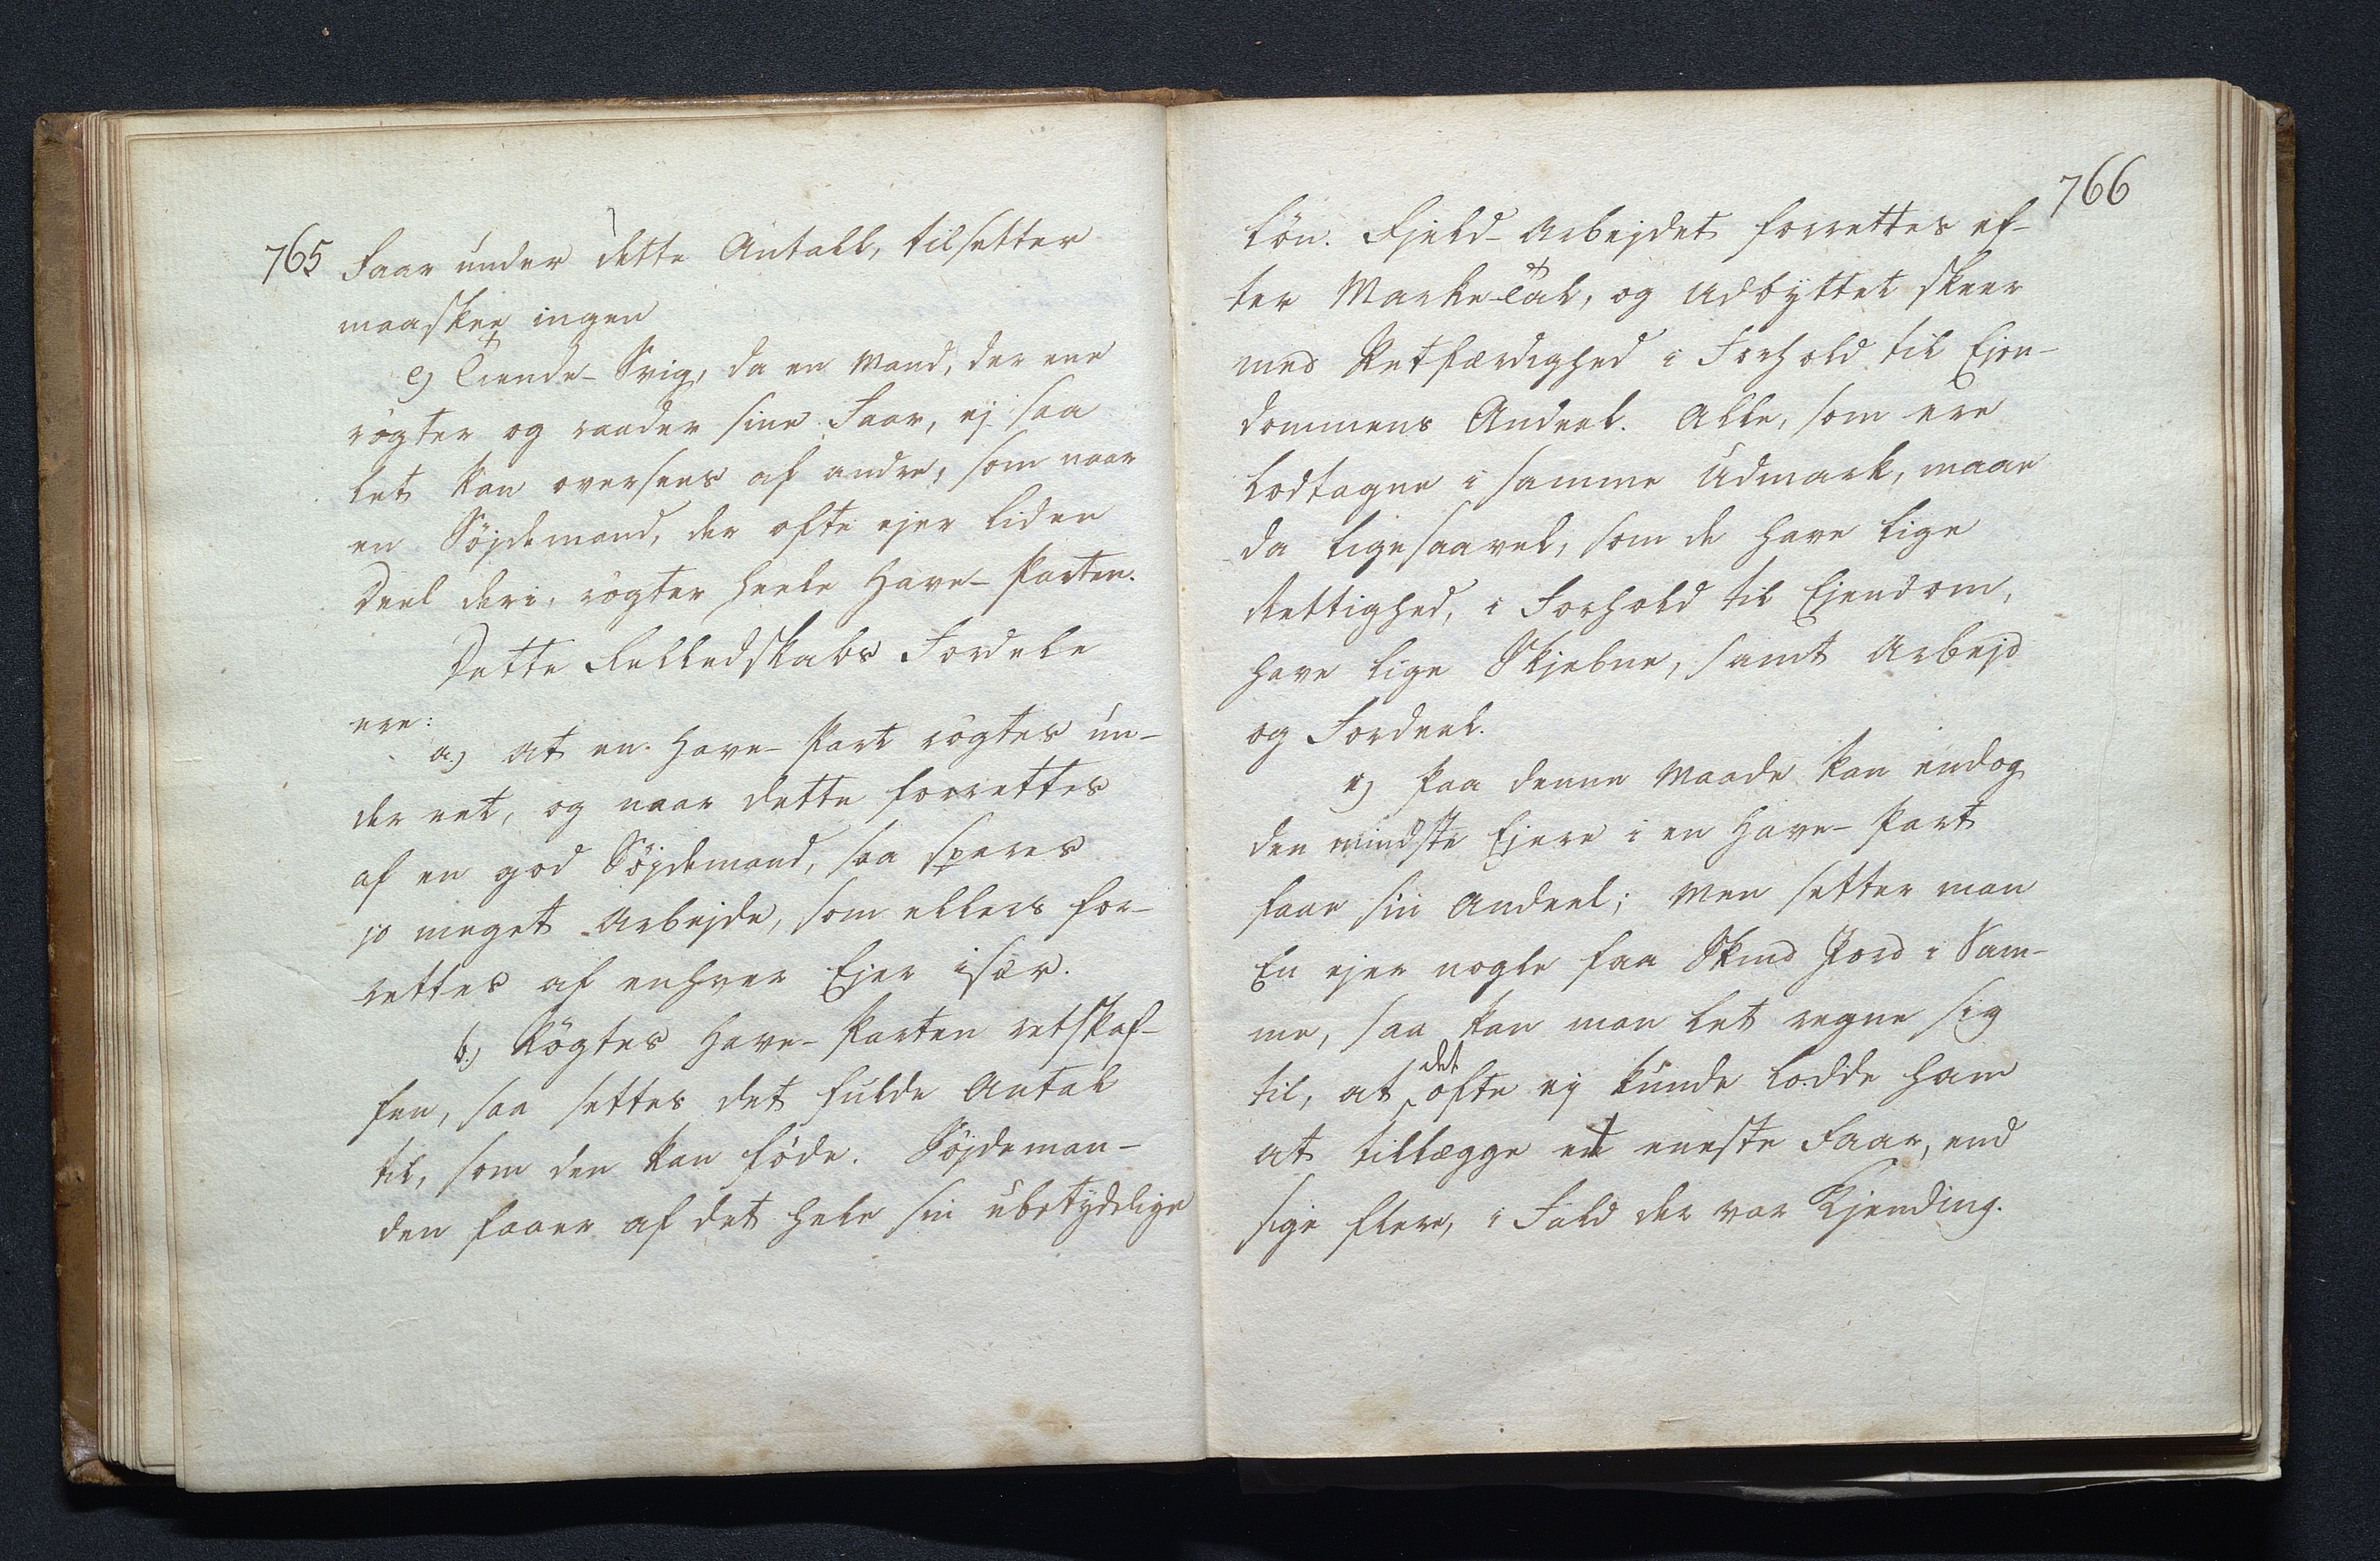 765
Faar under dette Antall, tilsetter
maaskee ingen
e) Tiende-Svig, da en Mand, der ene
røgter og raader sine Faar, ej saa
let kan oversees af andre, som naar
en Søjdemand, der ofte ejer liden
Deel deri, røgter heele Have-Parten.
Dette Felledskabs Fordele
ere:
a) at en Have-Part røgtes un-
der eet, og naar dette forrettes
af en god Søjdemand, saa spares
jo meget Arbejde, som ellers for-
rettes af enhver Ejer især.
b) Røgtes Have-Parten retskaf-
fen, saa settes det fulde Antal
til, som den kan føde. Søjdeman-
den faaer af det hele sin ubetydelige
766
Løn. Fjeld-Arbejdet forrettes ef-
ter Marke-Tal, og Udbyttet skeer
med Retfærdighed i Forhold til Ejen-
dommens Andeel. Alle, som ere
lodtagne i samme Udmark, maae
da ligesaavel, som de have lige
Rettighed, i Forhold til Ejendom,
have lige Skjebne, samt Arbejd
og Fordeel.
e) Paa denne Maade kan endog
den mindste Ejere i en Have-Part
faae sin Andeel; Men setter man
En ejer nogle faa Skind Jord i Sam-
me, saa kan man let regne sig
til, at det ofte ej kunde lodde ham
at tillægge et eneste Faar, end
sige flere, i Fald der var Kjending.